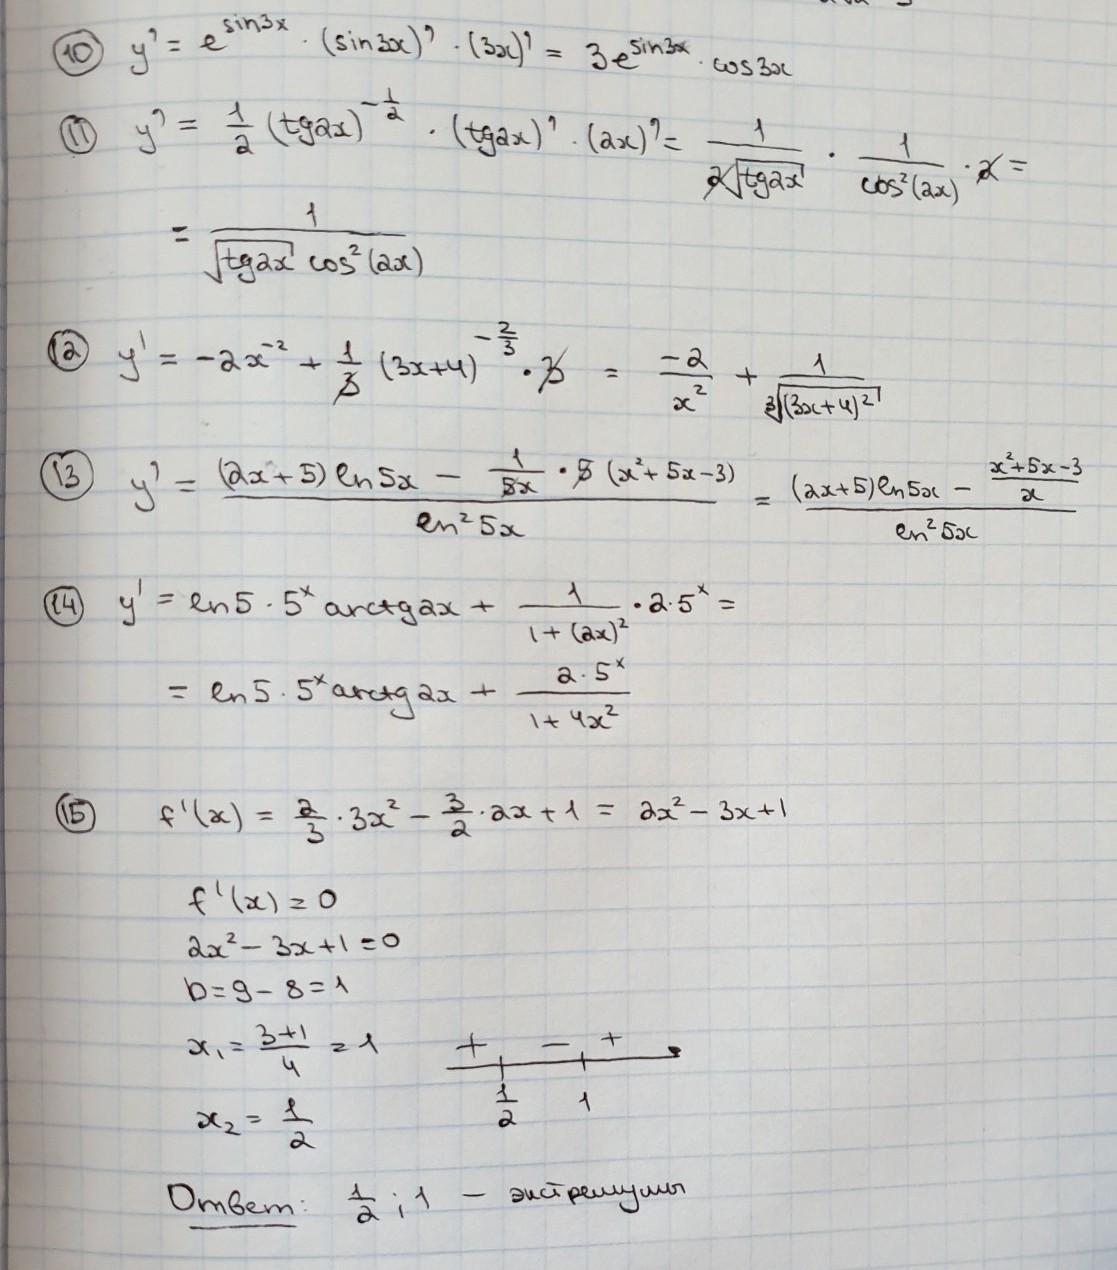 10 y' = e^{sin3x} · (sin3x)' · (3x)' = 3e^{sin3x} · cos3x
11 y' = 1/2 (tg2x)^{-1/2} · (tg2x)' · (2x)' = 1/(2√(tg2x)) · 1/(cos²(2x)) · 2 =
= 1/(√(tg2x) cos²(2x))
12 y' = -2x^{-2} + 1/3 (3x+4)^{-2/3} · 3 = -2/x² + 1/∛((3x+4)²)
13 y' = ((2x+5) ln5x - 1/(5x) · 5 (x²+5x-3))/(ln²5x) = ((2x+5) ln5x - (x²+5x-3)/x)/(ln²5x)
14 y' = ln5 · 5^x arctg2x + 1/(1+(2x)²) · 2·5^x =
= ln5 · 5^x arctg2x + (2·5^x)/(1+4x²)
15 f'(x) = 2/3 · 3x² - 3/2 · 2x + 1 = 2x² - 3x + 1
f'(x) = 0
2x² - 3x + 1 = 0
D = 9 - 8 = 1
x₁ = (3+1)/4 = 1
+ - +
1/2 1
x₂ = 1/2
Ответ: 1/2 ; 1 - экстремумы